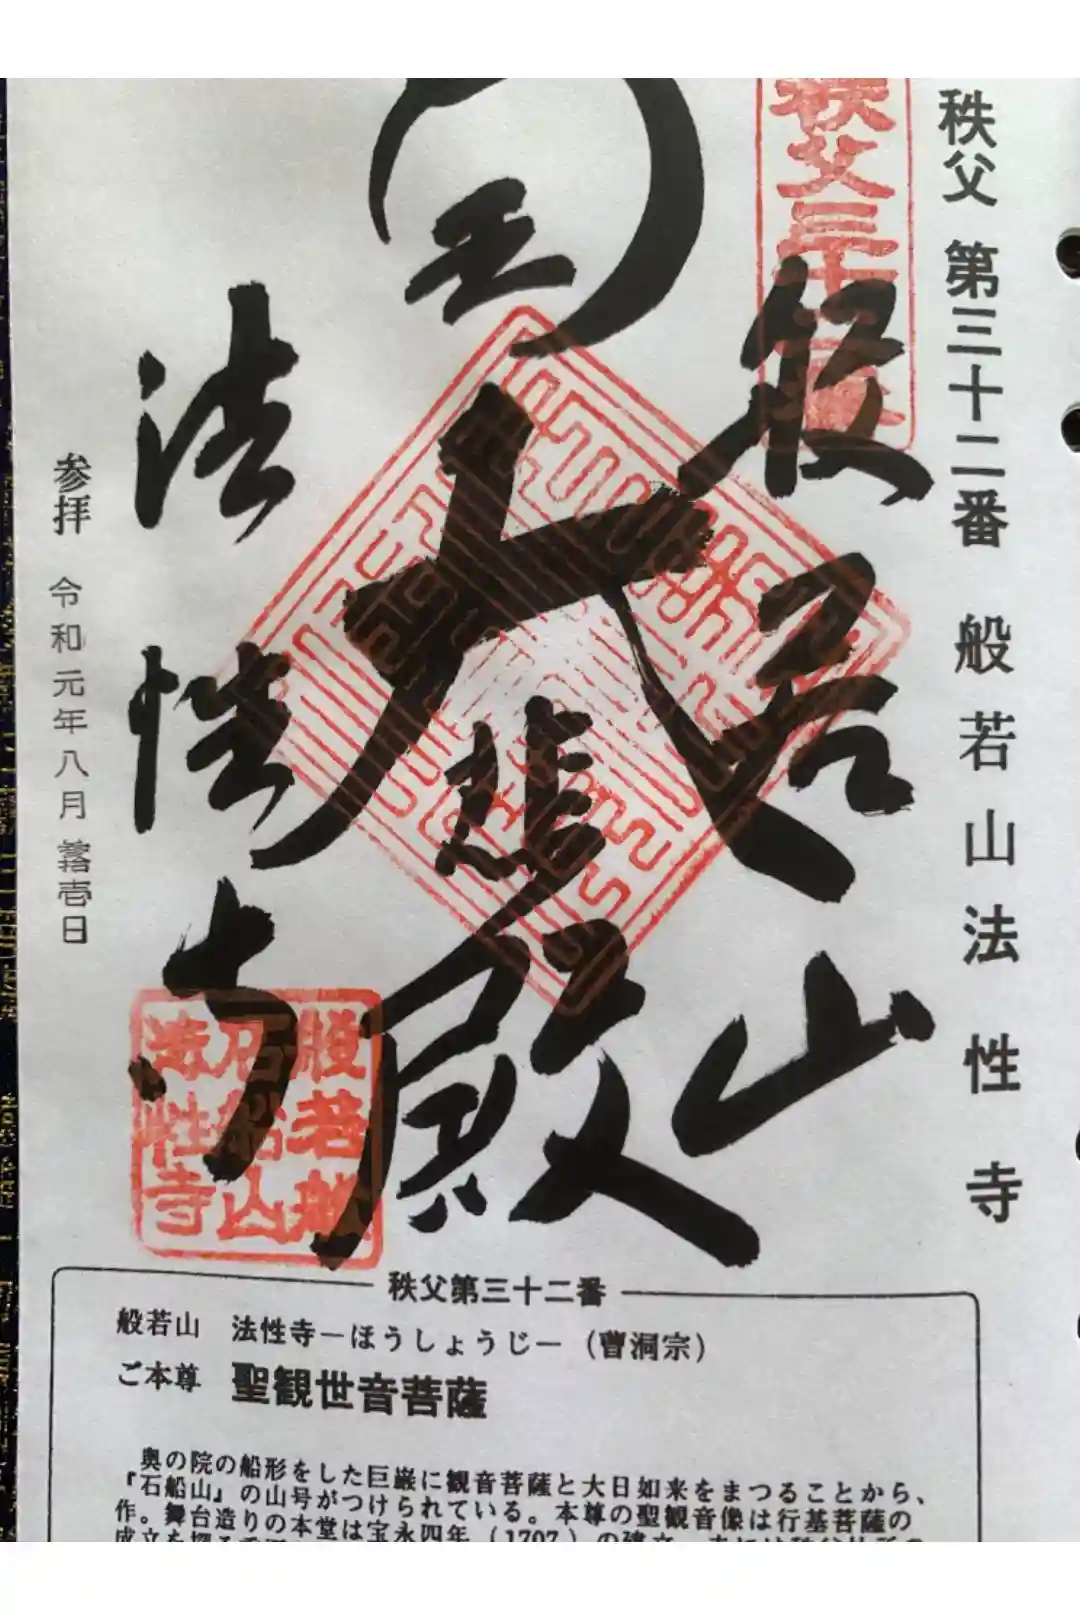 秩父 第三十二番 般若山法性寺
秩父三十二番
般若山
大悲殿
法性寺
参拝 令和元年八月
壱日
般若
石船山
法性寺
秩父第三十二番
般若山 法性寺ーほうしょうじー（曹洞宗）
ご本尊 聖観世音菩薩
奥の院の船形をした巨巌に観音菩薩と大日如来をまつることから、
『石船山』の山号がつけられている。本尊の聖観音像は行基菩薩の
作。舞台造りの本堂は宝永四年（1707）の建立